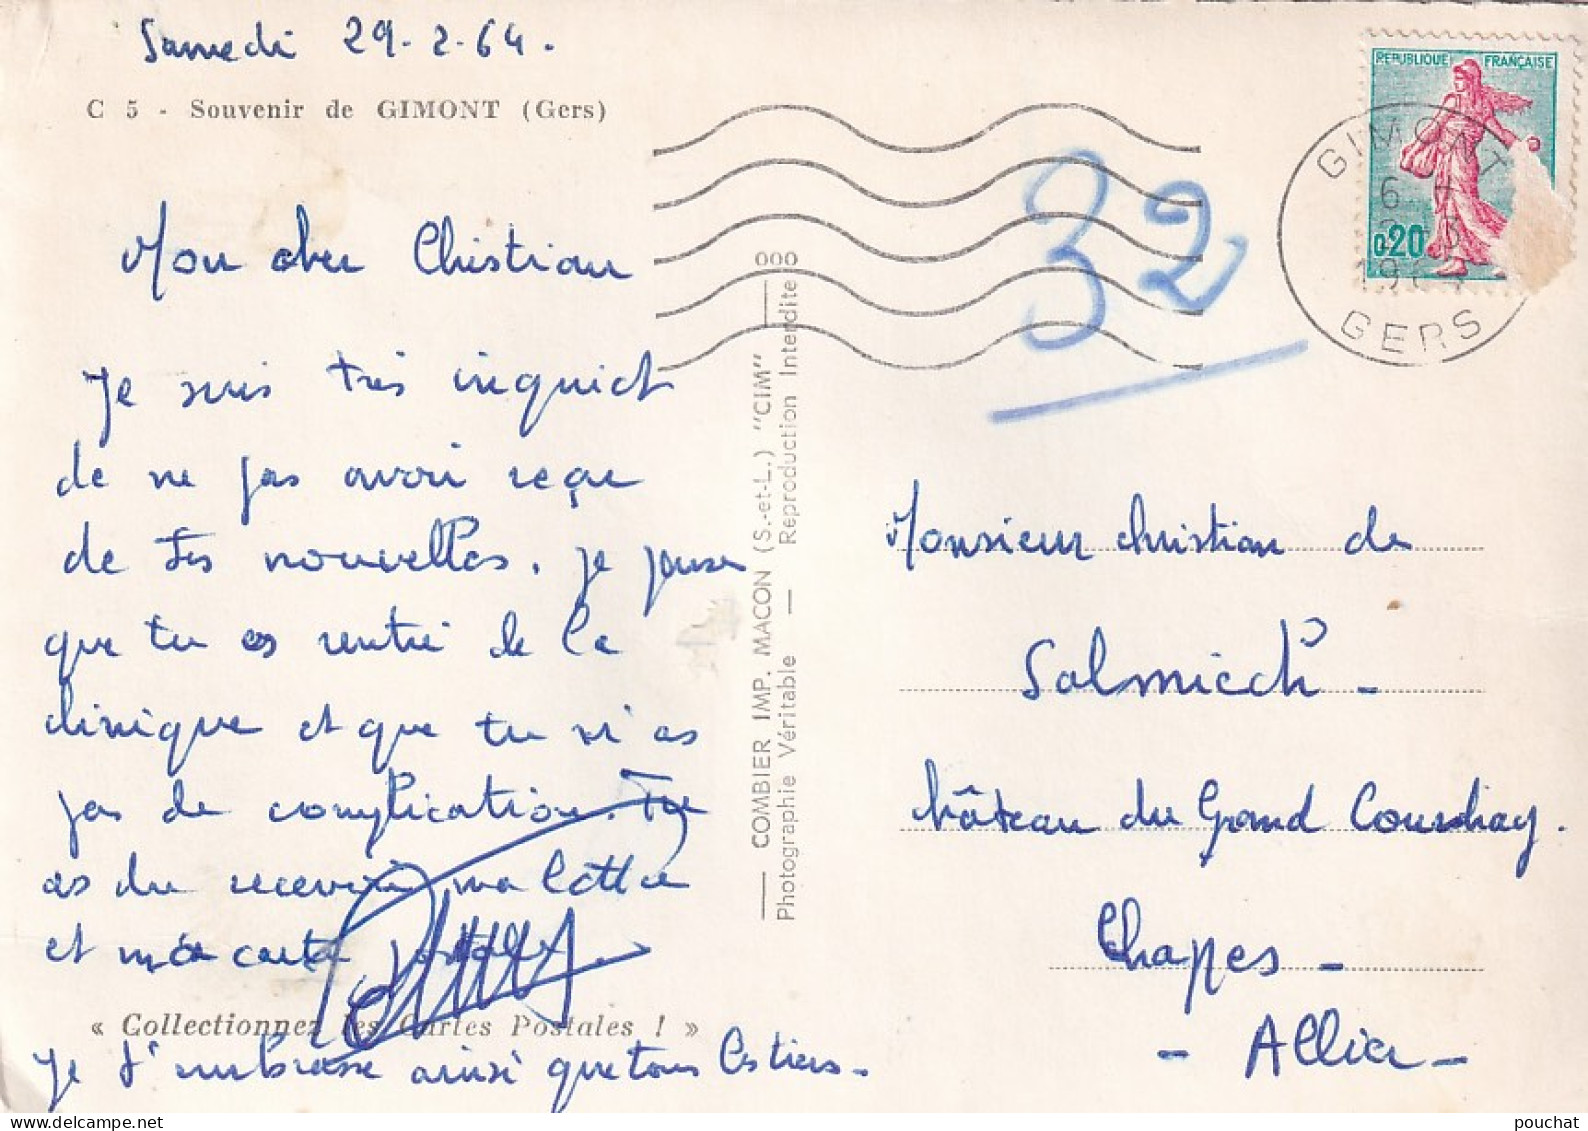 Samedi 29-2-64.
C 5 - Souvenir de GIMONT (Gers)
Mon cher Christian
Je suis très inquiet
de ne pas avoir reçu
de tes nouvelles. Je pense
que tu es rentré de la
clinique et que tu n'as
pas de complication. Tu
as du recevoir ma lettre
et ma carte postale.
« Collectionnez les Cartes Postales ! »
Je t'embrasse ainsi que tous les tiens.
COMBIER IMP. MACON (S.-et-L.) "CIM"
Photographie Véritable — Reproduction Interdite
32
REPUBLIQUE FRANÇAISE
0,20
GIMONT
GERS
Monsieur Christian de
Salmiech -
Château du Grand Courdiay.
Chapes -
- Allier -
pouchat